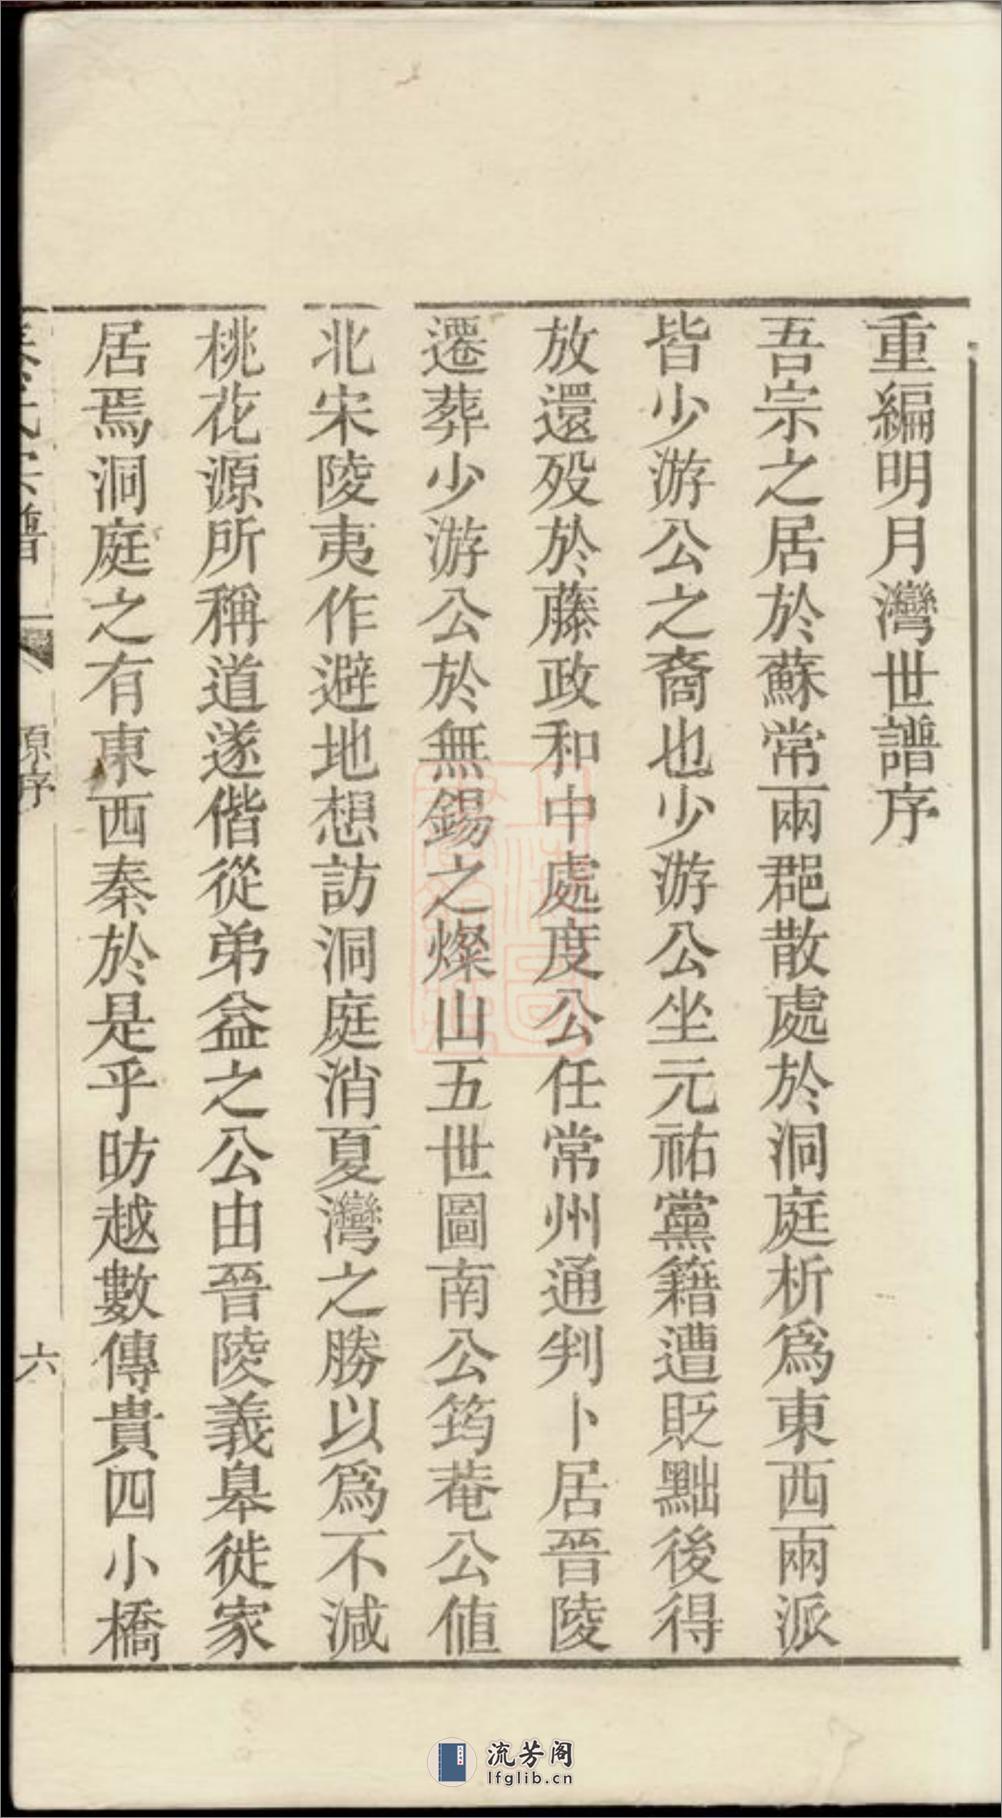 重編明月灣世譜序
吾宗之居於蘇常兩郡散處於洞庭析爲東西兩派
皆少游公之裔也少游公坐元祐黨籍遭貶黜後得
放還歿於藤政和中處度公任常州通判卜居晉陵
遷葬少游公於無錫之燦山五世圖南公筠菴公値
北宋陵夷作避地想訪洞庭消夏灣之勝以爲不減
桃花源所稱道遂偕從弟益之公由晉陵義皋徙家
居焉洞庭之有東西秦於是乎昉越數傳貴四小橋
氏宗譜
原序
六
流芳阁
lfglib.cn